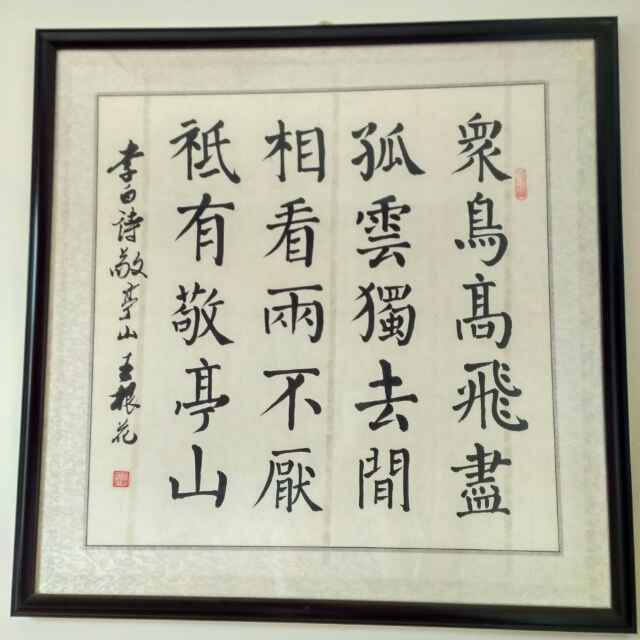 衆鳥髙飛盡
孤雲獨去閒
相看兩不厭
祗有敬亭山
李白詩敬亭山王根花